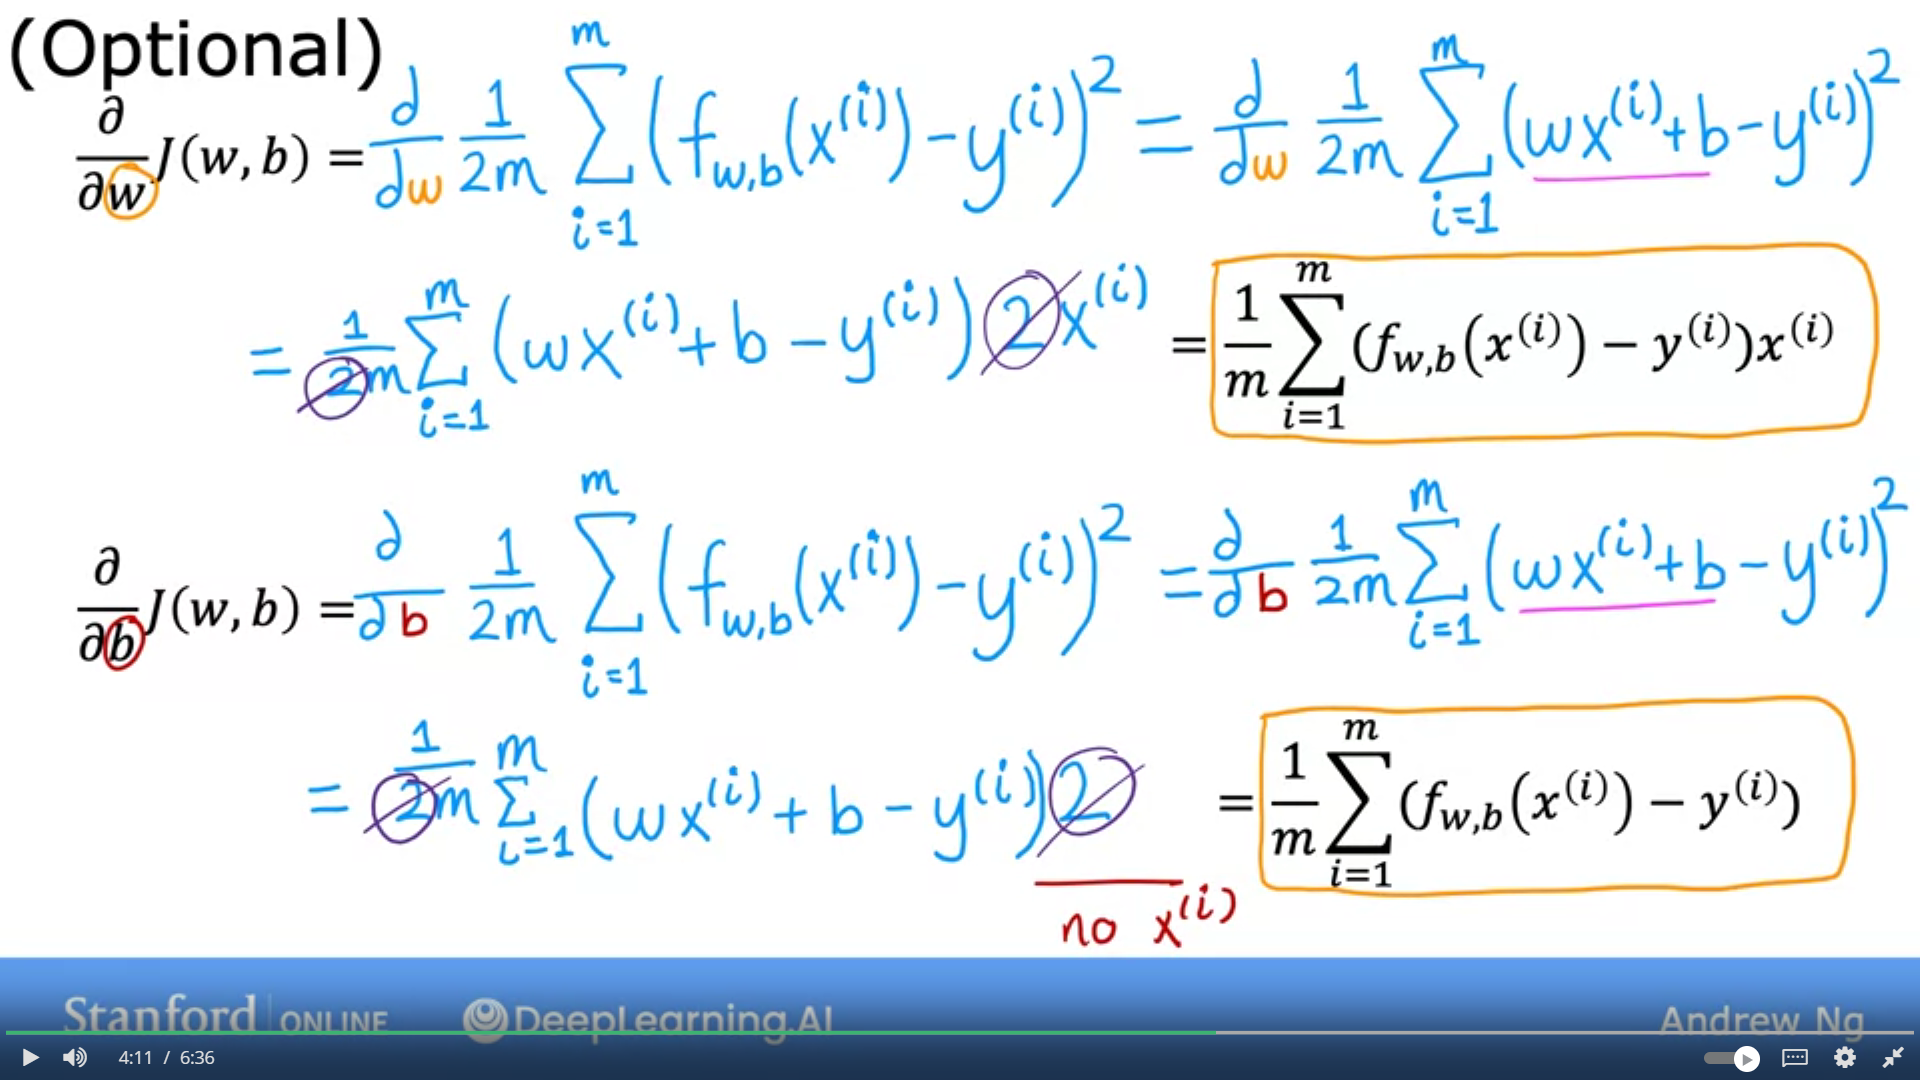 (Optional)
∂/∂w J(w, b) = ∂/∂w 1/2m ∑_{i=1}^{m} (f_{w,b}(x^{(i)}) − y^{(i)})^2 = ∂/∂w 1/2m ∑_{i=1}^{m} (wx^{(i)} + b − y^{(i)})^2
= 1/2m ∑_{i=1}^{m} (wx^{(i)} + b − y^{(i)}) 2x^{(i)} = 1/m ∑_{i=1}^{m} (f_{w,b}(x^{(i)}) − y^{(i)})x^{(i)}
∂/∂b J(w, b) = ∂/∂b 1/2m ∑_{i=1}^{m} (f_{w,b}(x^{(i)}) − y^{(i)})^2 = ∂/∂b 1/2m ∑_{i=1}^{m} (wx^{(i)} + b − y^{(i)})^2
= 1/2m ∑_{i=1}^{m} (wx^{(i)} + b − y^{(i)}) 2 = 1/m ∑_{i=1}^{m} (f_{w,b}(x^{(i)}) − y^{(i)})
no x^{(i)}
Stanford | ONLINE DeepLearning.AI Andrew Ng
4:11 / 6:36